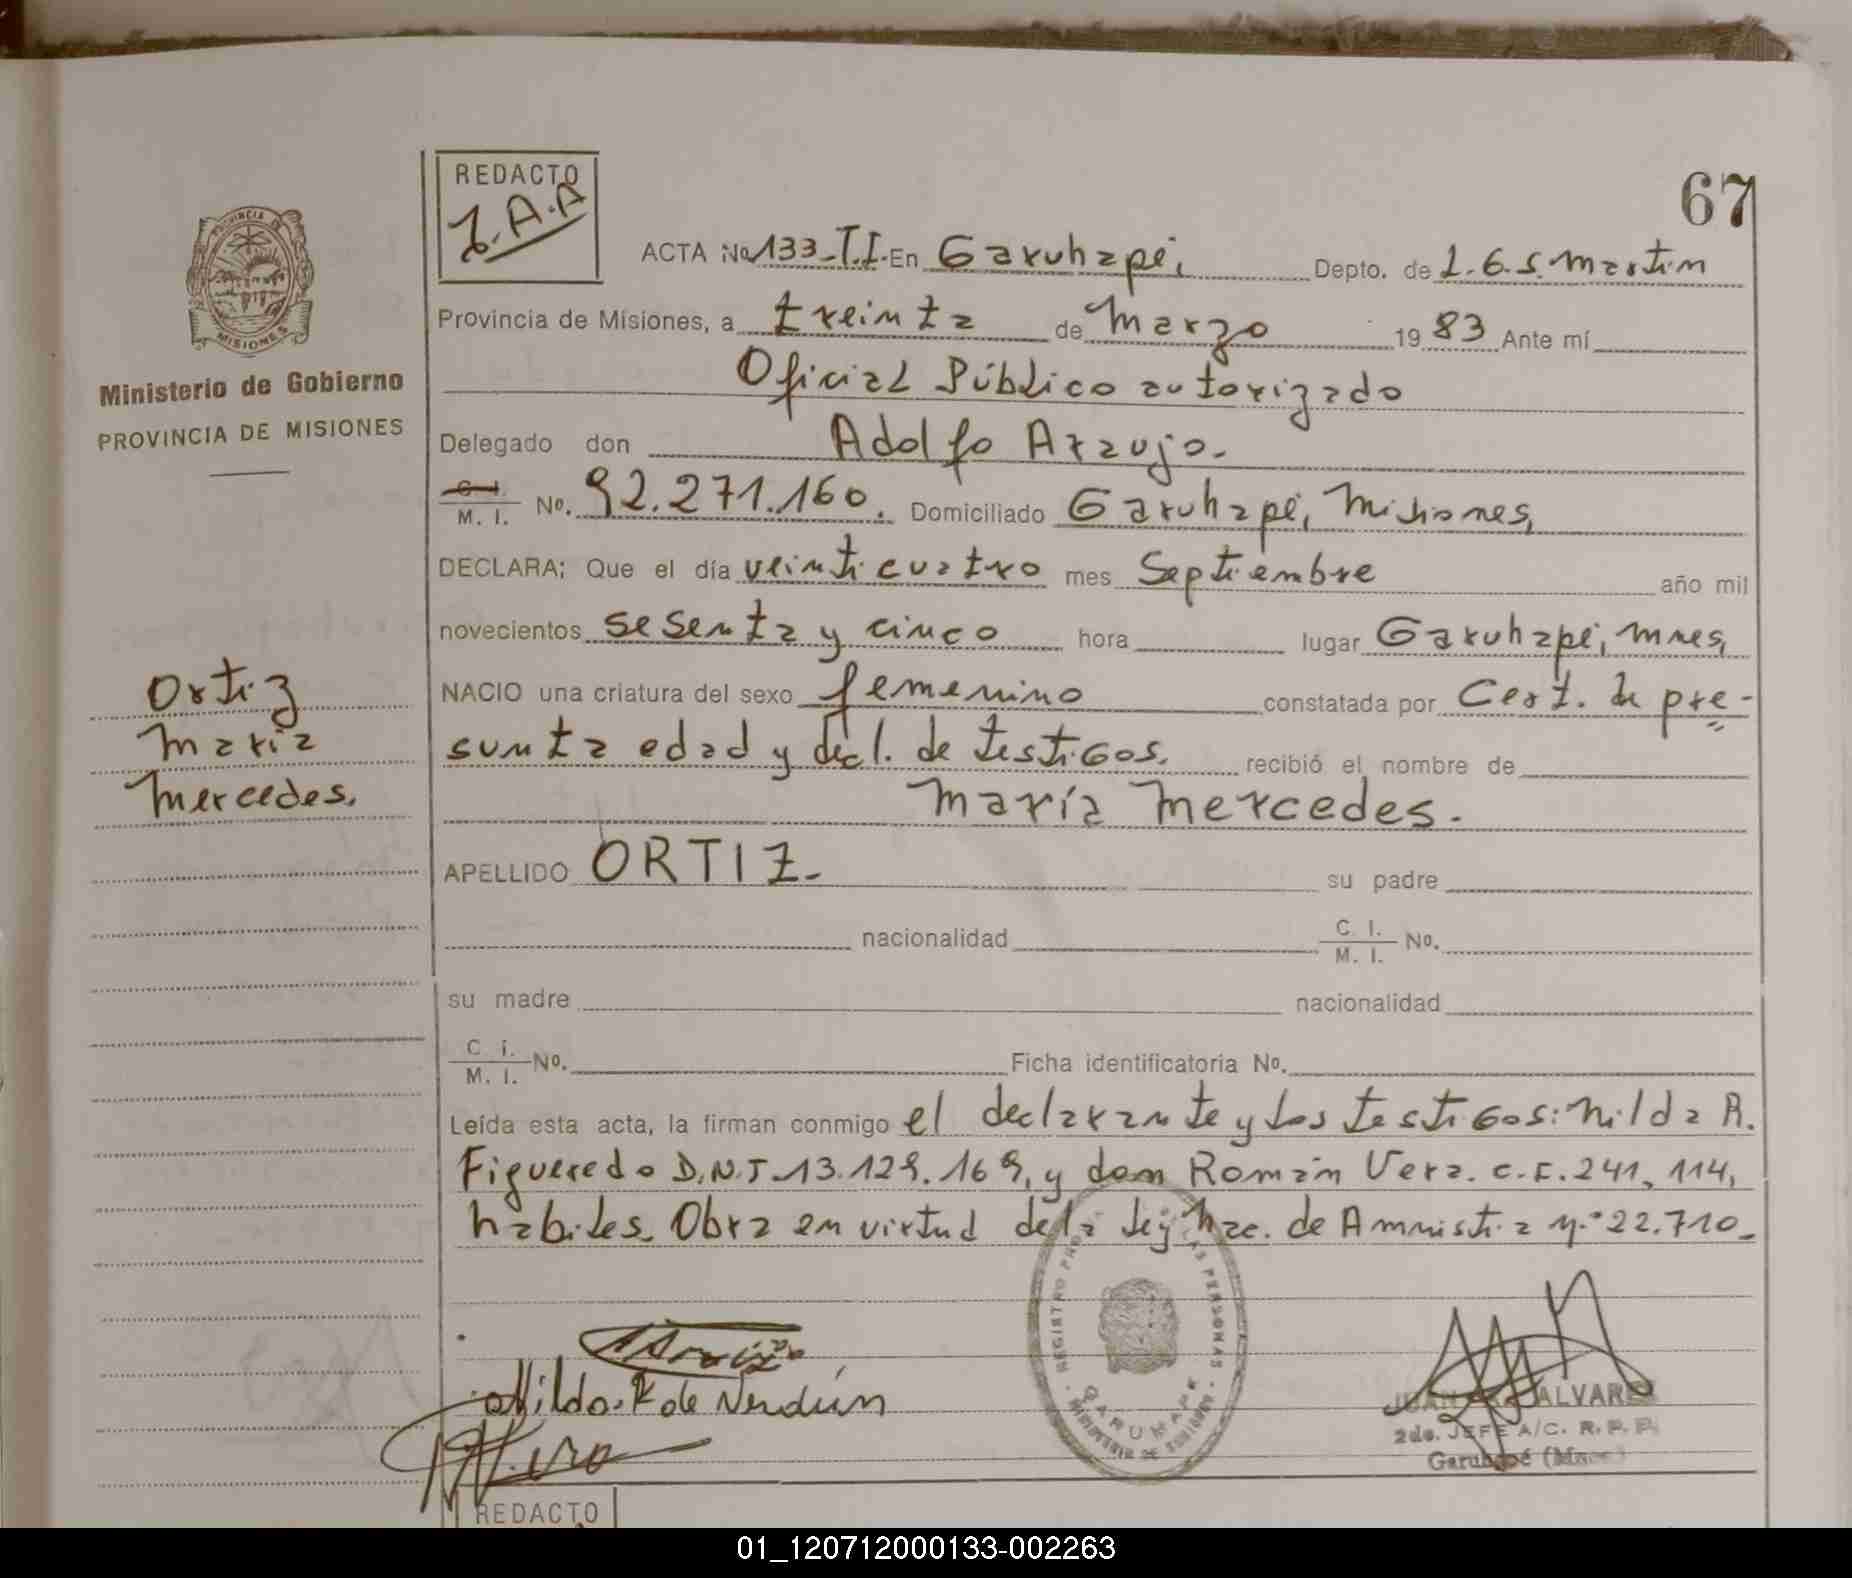 67
REDACTO
J.A.A
ACTA No 133-T.I. En Garuhapé, Depto. de L.G.S. Martín
Provincia de Misiones, a treinta de Marzo 1983 Ante mí
Oficial Público autorizado
Delegado don Adolfo Araujo.
C. I.
M. I. No. 92.271.160. Domiciliado Garuhapé, Misiones,
DECLARA; Que el día veinticuatro mes Septiembre año mil
novecientos sesenta y cinco hora lugar Garuhapé, Mnes,
NACIO una criatura del sexo femenino constatada por Cert. de pre-
sunta edad y decl. de testigos. recibió el nombre de
María Mercedes.
APELLIDO ORTIZ.- su padre
nacionalidad C. I.
M. I. No.
su madre nacionalidad
C. I.
M. I. No. Ficha identificatoria No.
Leída esta acta, la firman conmigo el declarante y los testigos: Nilda R.
Figueredo D.N.I. 13.129.169, y don Román Vera. C.I. 241.114,
hábiles. Obra en virtud de la Ley Nac. de Amnistia N.° 22.710.-
PROVINCIA DE
MISIONES
Ministerio de Gobierno
PROVINCIA DE MISIONES
Ortiz
María
Mercedes.
Nilda R de Verdún
REGISTRO PROV. LAS PERSONAS
GARUHAPE
MINISTERIO DE GOBIERNO
JUAN ALVAREZ
2do. JEFE A/C. R. P. P.
Garuhapé (Mnes)
REDACTO
01_120712000133-002263